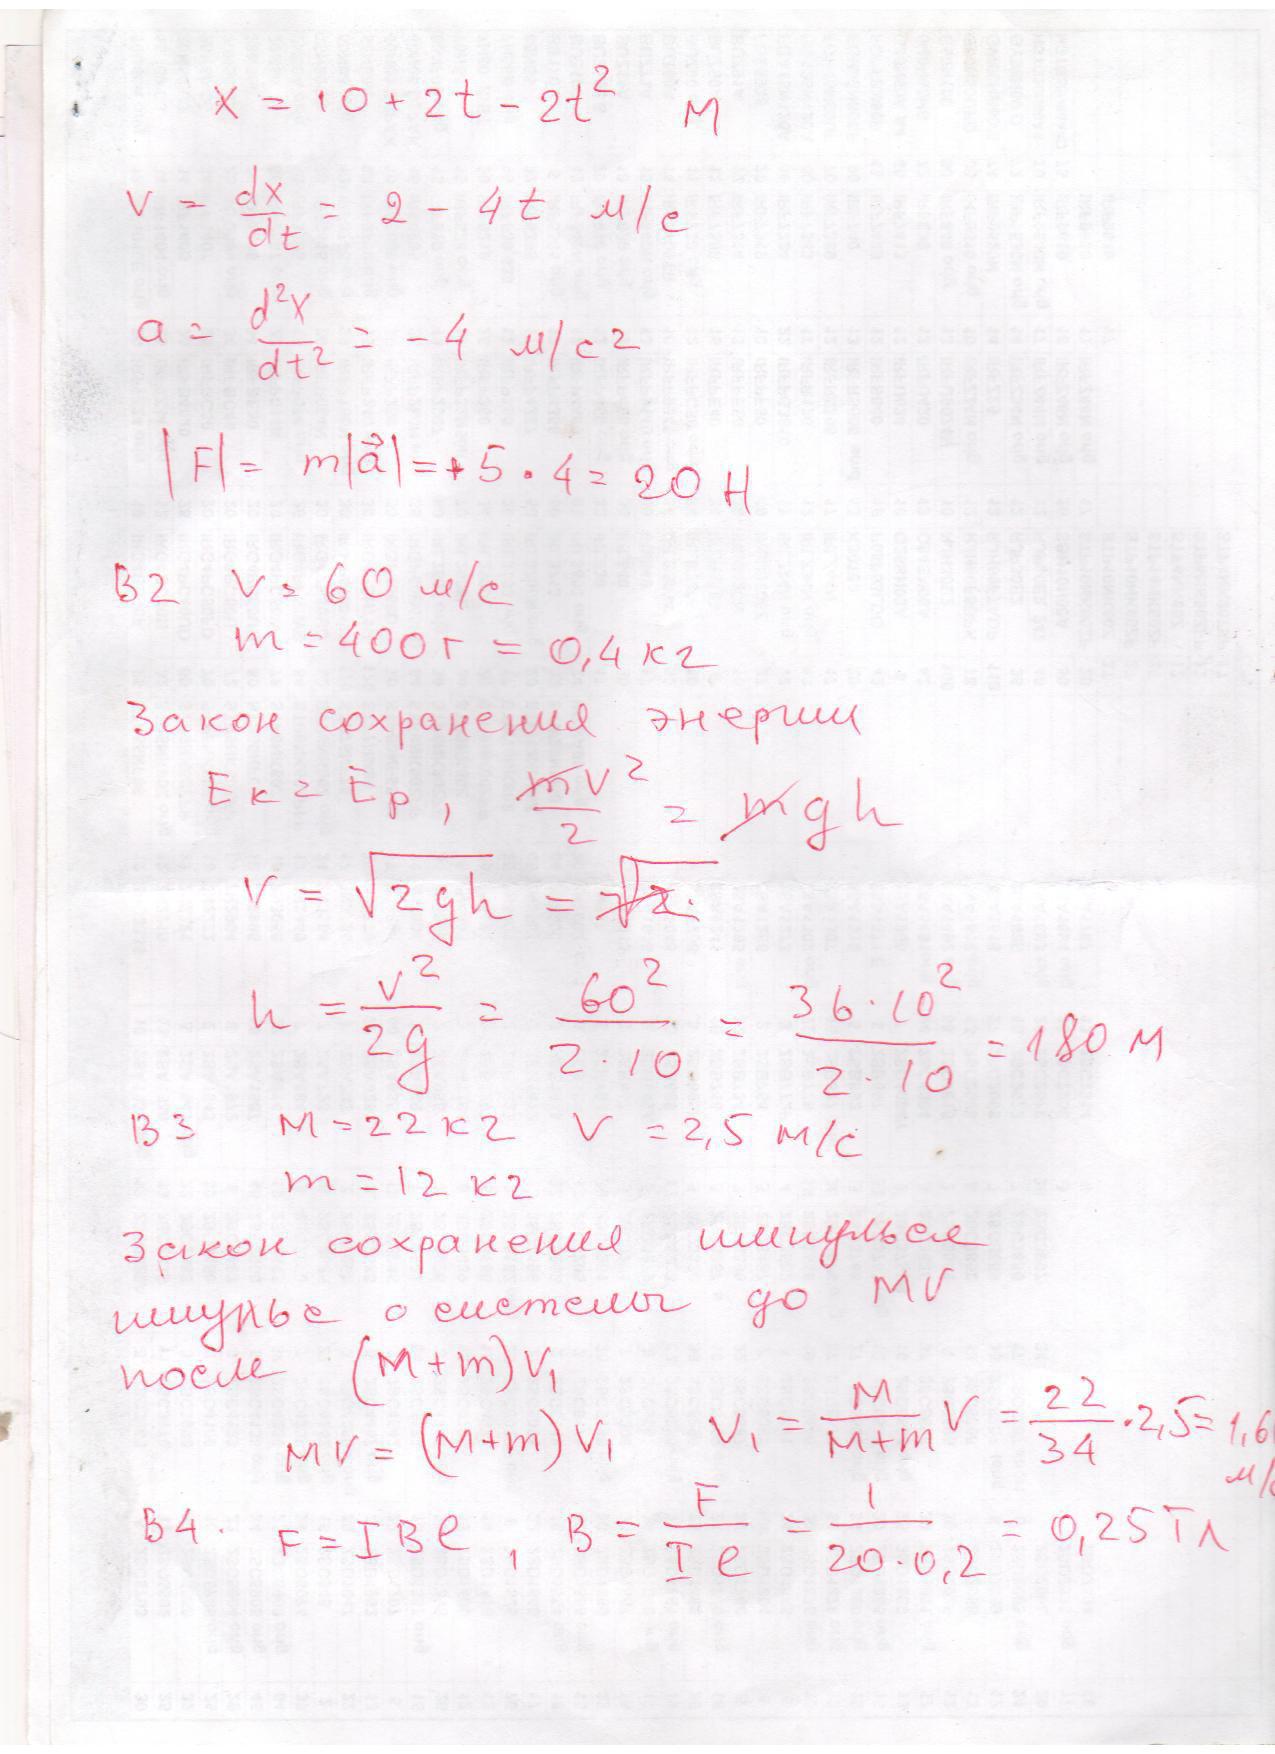 x = 10 + 2t - 2t² м
v = dx/dt = 2 - 4t м/с
a = d²x/dt² = -4 м/с2
|F| = m|a⃗| = + 5 · 4 = 20 Н
В2 v = 60 м/с
m = 400 г = 0,4 кг
Закон сохранения энергии
Eк = Eр, mv²/2 = mgh
v = √2gh = √2·
h = v²/2g = 60²/2·10 = 36·10²/2·10 = 180 м
В3 M = 22 кг V = 2,5 м/с
m = 12 кг
Закон сохранения импульса
импульс системы до MV
после (M+m)V₁
MV = (M+m)V₁ V₁ = M/M+m V = 22/34 · 2,5 = 1,6
м/с
В4. F = IBl, B = F/Il = 1/20·0,2 = 0,25 Тл